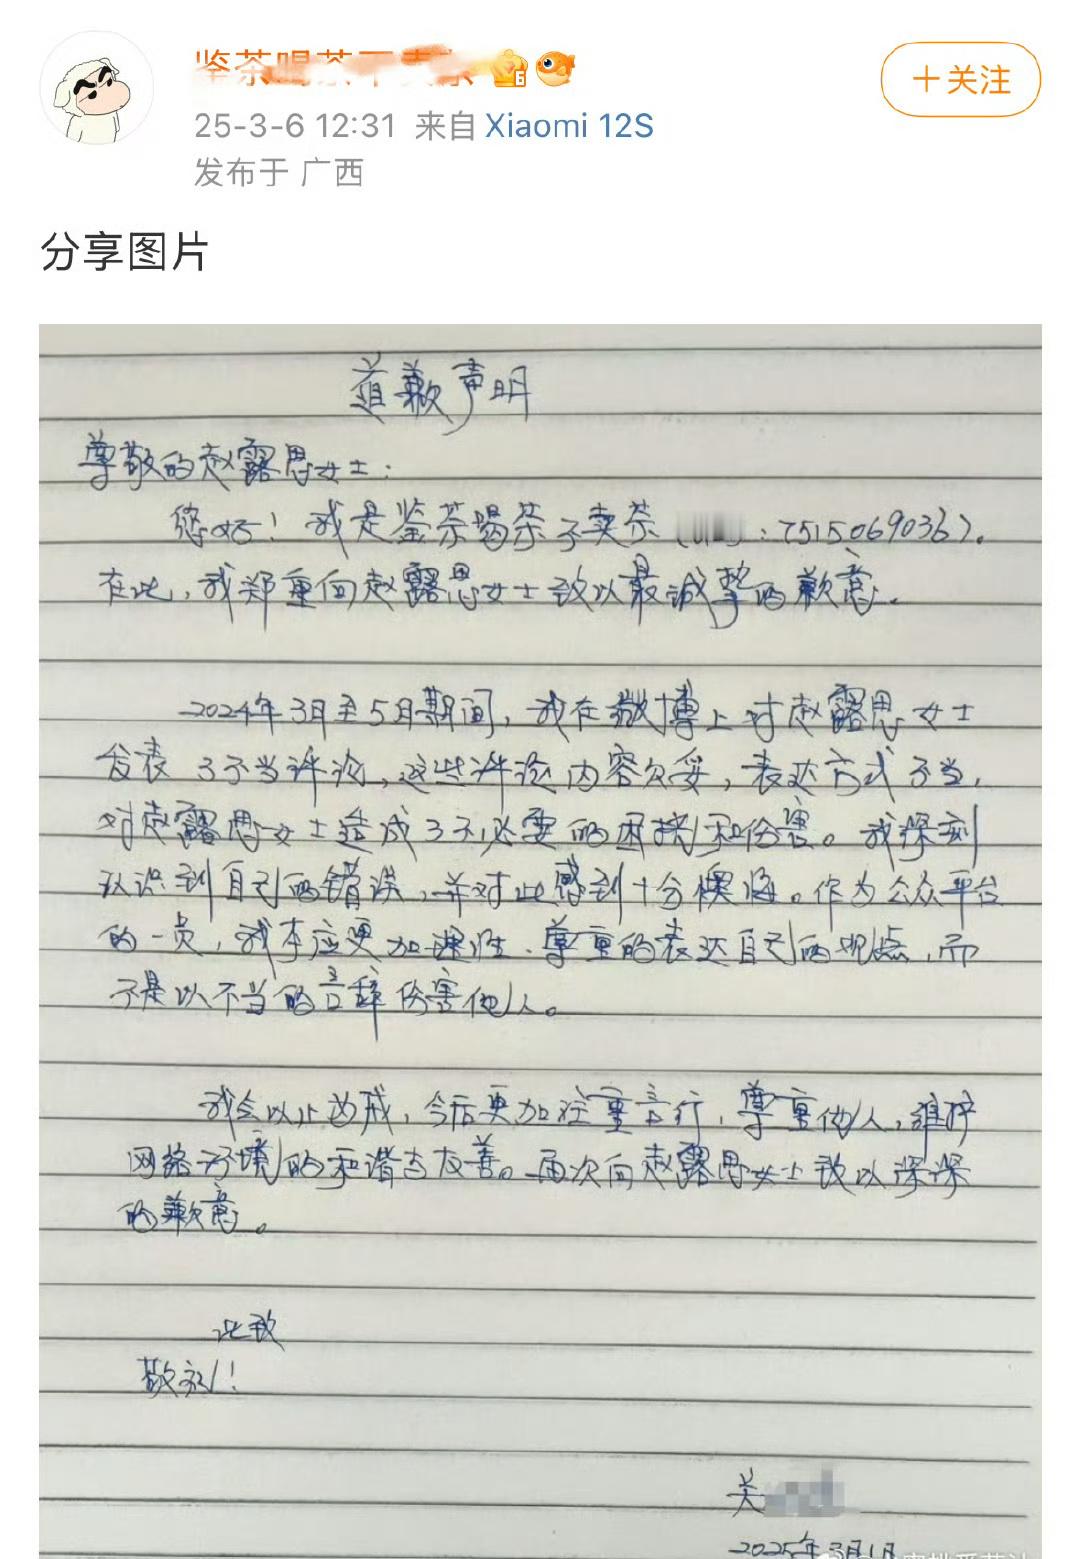 鉴茶喝茶不卖茶
25-3-6 12:31 来自 Xiaomi 12S
发布于 广西
+关注
分享图片
道歉声明
尊敬的赵露思女士:
您好！我是鉴茶喝茶不卖茶（ : 7515069036）。
在此，我郑重向赵露思女士致以最诚挚的歉意。
2024年3月至5月期间，我在微博上对赵露思女士
发表了不当评论，这些评论内容欠妥，表达方式不当，
对赵露思女士造成了不必要的困扰和伤害。我深刻
认识到自己的错误，并对此感到十分懊悔。作为公众平台
的一员，我本应更加理性、尊重的表达自己的观点，而
不是以不当的言辞伤害他人。
我会以此为戒，今后更加注重言行，尊重他人，维护
网络环境的和谐与友善。再次向赵露思女士致以深深
的歉意。
此致
敬礼！
关
2025年3月1日